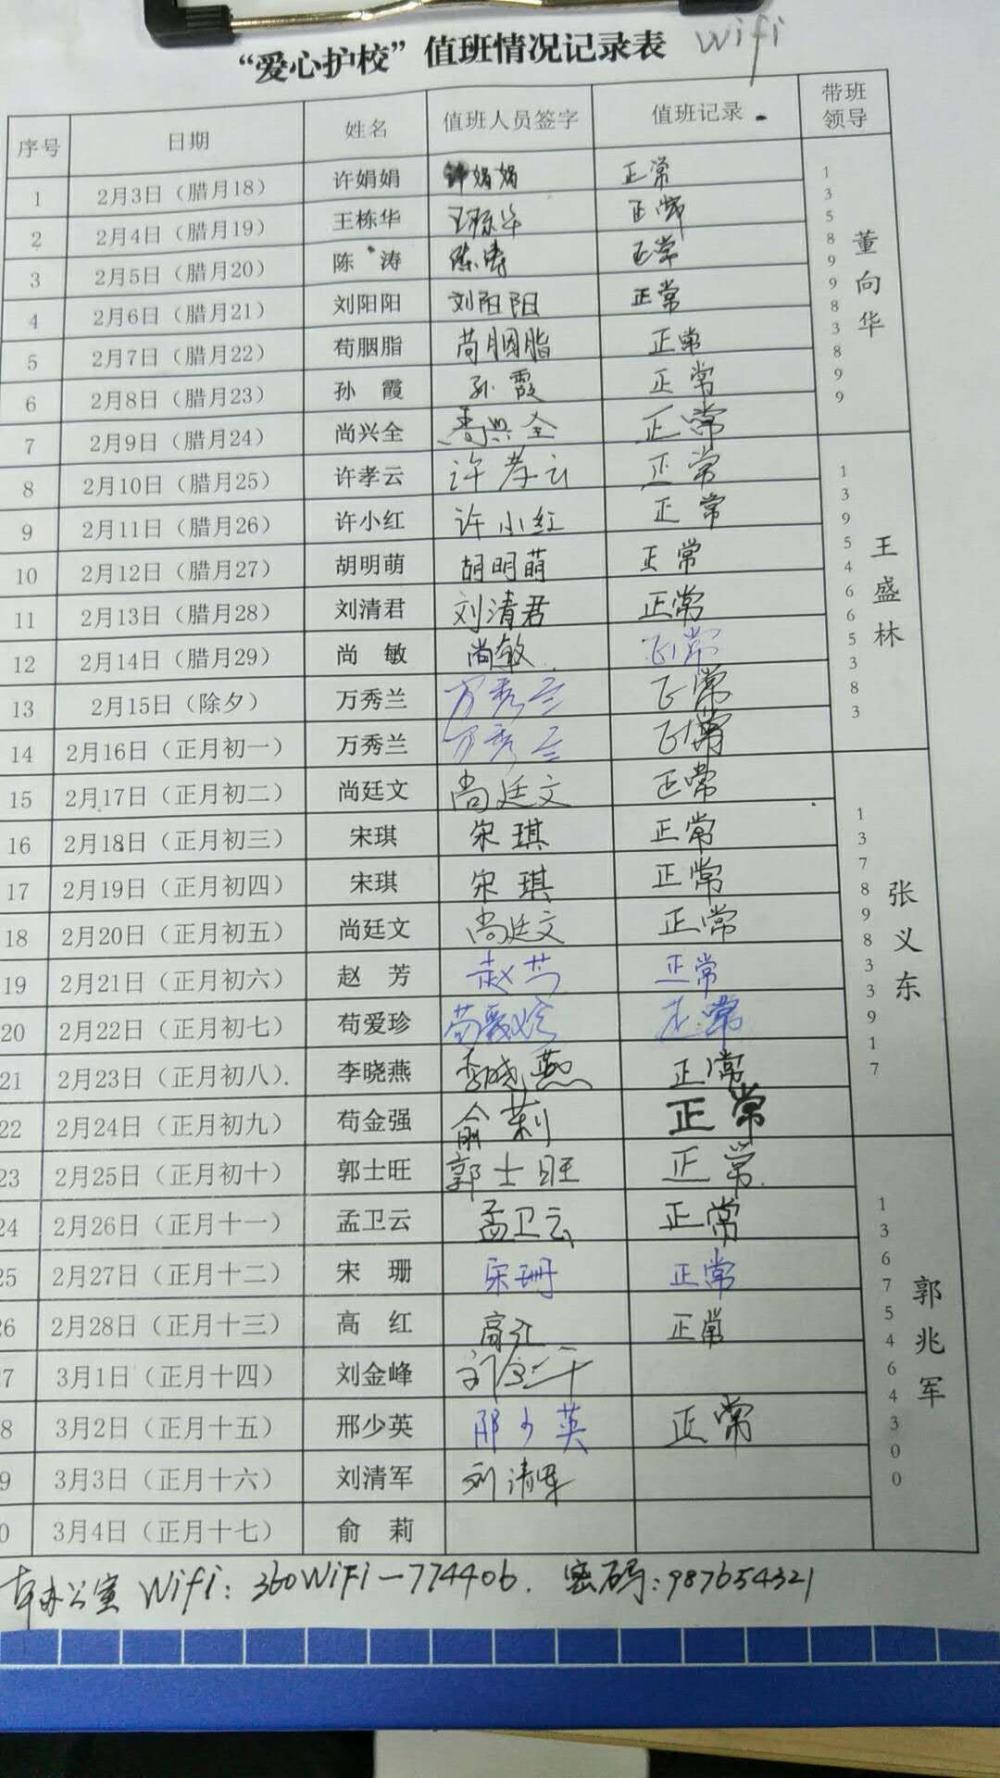 “爱心护校”值班情况记录表 wifi
序号 日期 姓名 值班人员签字 值班记录 带班领导
1 2月3日（腊月18） 许娟娟 许娟娟 正常
2 2月4日（腊月19） 王栋华 王栋华 正常
3 2月5日（腊月20） 陈 涛 陈涛 正常
4 2月6日（腊月21） 刘阳阳 刘阳阳 正常
5 2月7日（腊月22） 苟胭脂 苟胭脂 正常
6 2月8日（腊月23） 孙 霞 孙霞 正常
7 2月9日（腊月24） 尚兴全 尚兴全 正常
13589983899 董向华
8 2月10日（腊月25） 许孝云 许孝云 正常
9 2月11日（腊月26） 许小红 许小红 正常
10 2月12日（腊月27） 胡明萌 胡明萌 正常
11 2月13日（腊月28） 刘清君 刘清君 正常
12 2月14日（腊月29） 尚 敏 尚敏 正常
13 2月15日（除夕） 万秀兰 万秀兰 正常
14 2月16日（正月初一） 万秀兰 万秀兰 正常
13954665383 王盛林
15 2月17日（正月初二） 尚廷文 尚廷文 正常
16 2月18日（正月初三） 宋琪 宋琪 正常
17 2月19日（正月初四） 宋琪 宋琪 正常
18 2月20日（正月初五） 尚廷文 尚廷文 正常
19 2月21日（正月初六） 赵 芳 赵芳 正常
20 2月22日（正月初七） 苟爱珍 苟爱珍 正常
21 2月23日（正月初八） 李晓燕 李晓燕 正常
22 2月24日（正月初九） 苟金强 俞莉 正常
13789833917 张义东
23 2月25日（正月初十） 郭士旺 郭士旺 正常
24 2月26日（正月十一） 孟卫云 孟卫云 正常
25 2月27日（正月十二） 宋 珊 宋珊 正常
26 2月28日（正月十三） 高 红 高红 正常
7 3月1日（正月十四） 刘金峰
8 3月2日（正月十五） 邢少英 邢少英 正常
9 3月3日（正月十六） 刘清军 刘清军
0 3月4日（正月十七） 俞 莉
13675464300 郭兆军
办公室 Wifi：360WiFi-774406. 密码：987654321